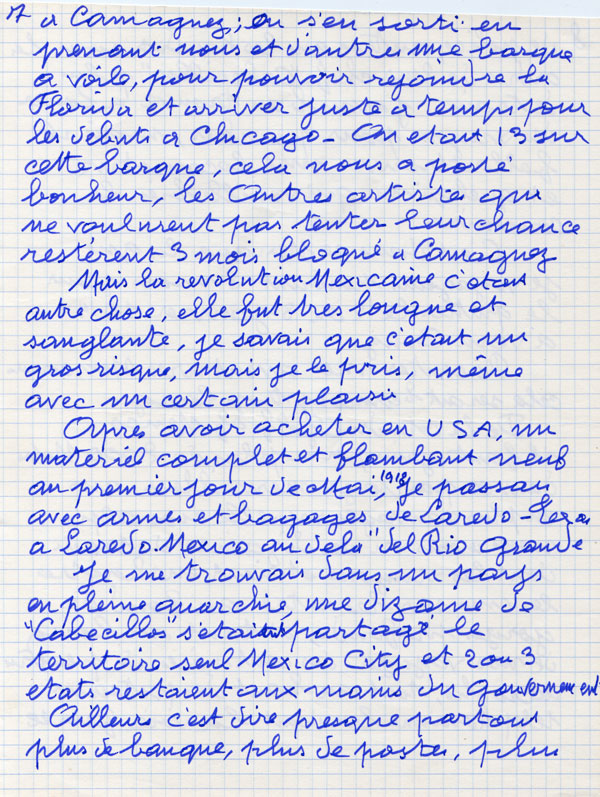 7 a Camaguez; on s'en sorti en
prenant nous et d'autres une barque
a voile, pour pouvoir rejoindre la
Florida et arriver juste a temps pour
les debuts a Chicago - On etait 13 sur
cette barque, cela nous a porté
bonheur, les Autres artistes qui
ne voulurent pas tenter leur chance
restérent 3 mois bloqué a Camaguez
Mais la revolution Mexicaine c'etait
autre chose, elle fut tres longue et
sanglante, je savais que c'etait un
gros risque, mais je le pris, même
avec un certain plaisir
Apres avoir acheter en USA, un
materiel complet et flambant neuf
au premier jour de Mai, 1913 je passai
avec armes et bagages de Laredo-Texas
a Laredo. Mexico au dela "del Rio Grande
Je me trouvais dans un pays
en pleine anarchie, une dizaine de
"Cabecillos" s'etaient partagé le
territoire seul Mexico City et 2 ou 3
etats restaient aux mains du Gouvernement
Ailleurs c'est dire presque partout
plus de banque, plus de postes, plus